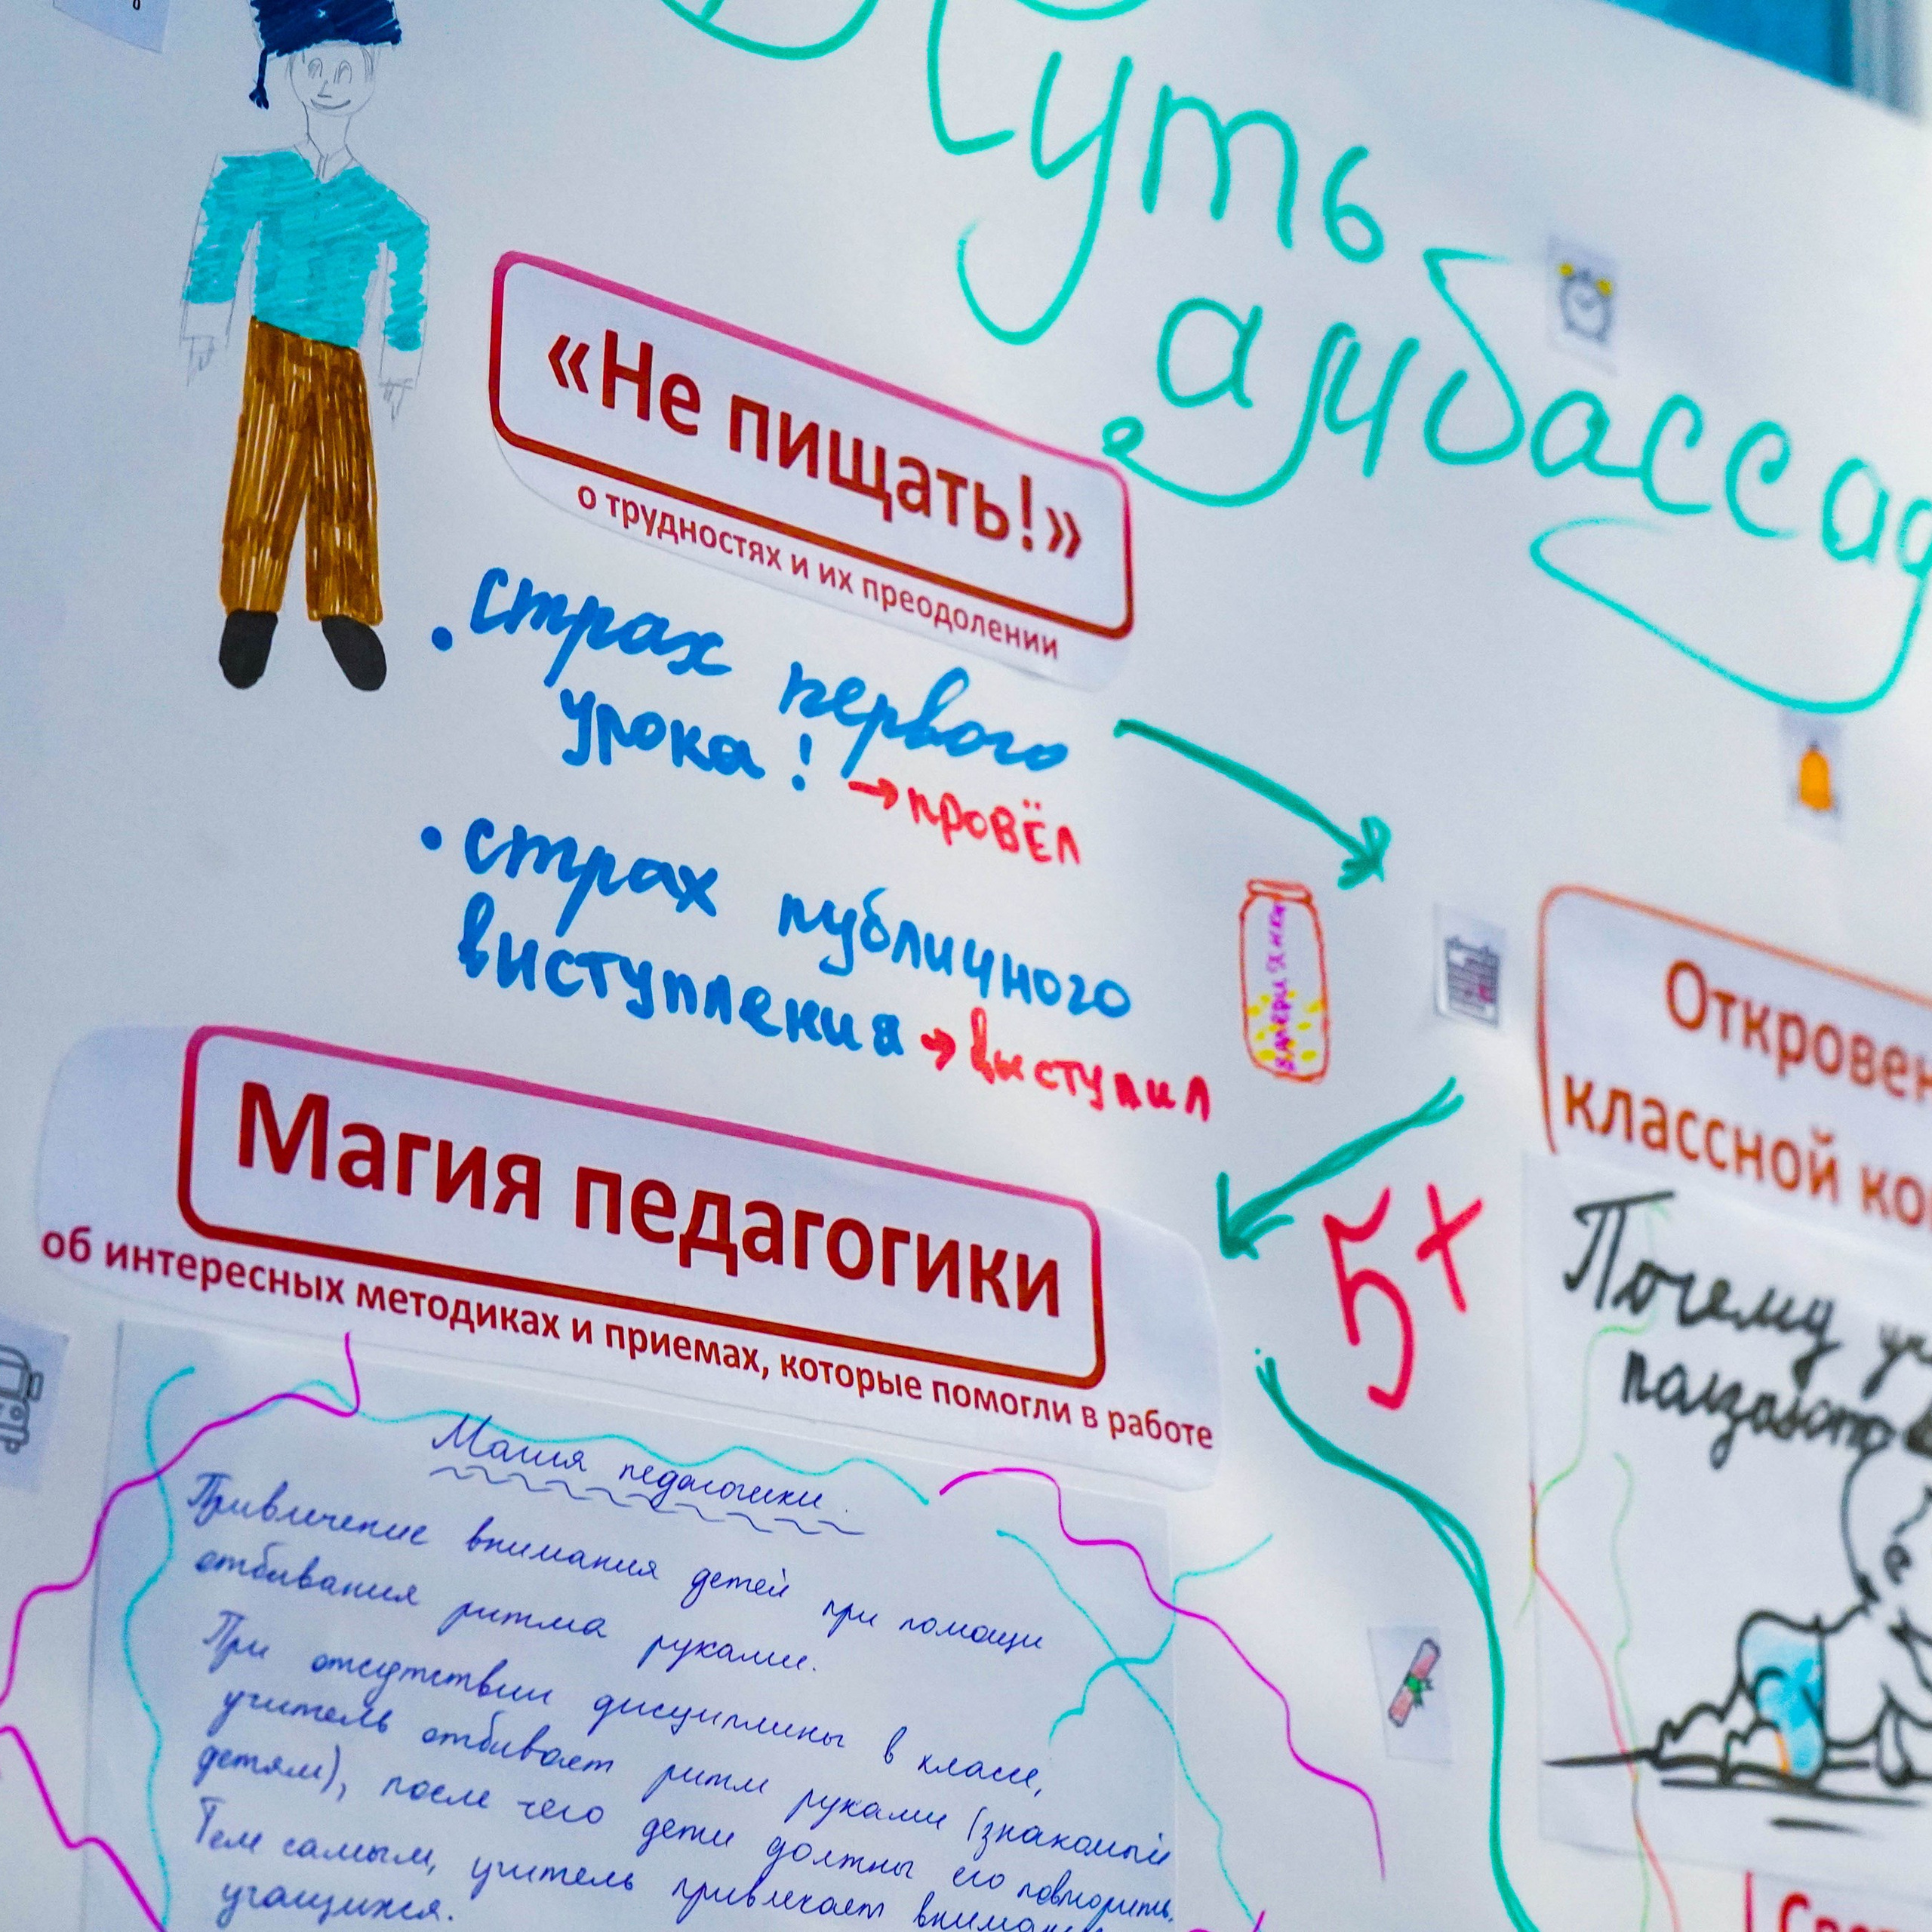 Путь
амбассад
«Не пищать!»
о трудностях и их преодолении
• страх первого
урока! → провёл
• страх публичного
виступления → выступил
Магия педагогики
об интересных методиках и приемах, которые помогли в работе
Магия педагогики.
Привлечение внимания детей при помощи
отбивания ритма руками.
При отсутствии дисциплины в классе,
учитель отбивает ритм руками (знакомый
детям), после чего дети должны его повторить.
Тем самым, учитель привлекает
учащихся.
5+
Откровен
классной ко
Почему